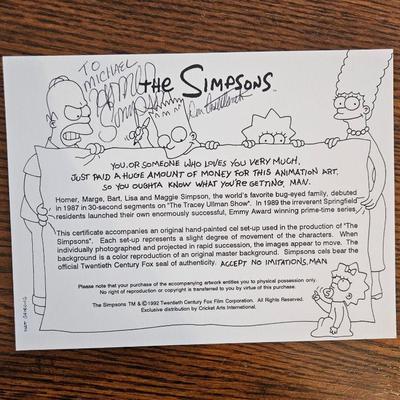 TO
MICHAEL
HOMER
SIMPSON
the SIMPSONS™
Dan Castellaneta
YOU, OR SOMEONE WHO LOVES YOU VERY MUCH,
JUST PAID A HUGE AMOUNT OF MONEY FOR THIS ANIMATION ART,
SO YOU OUGHTA KNOW WHAT YOU'RE GETTING, MAN.
Homer, Marge, Bart, Lisa and Maggie Simpson, the world's favorite bug-eyed family, debuted
in 1987 in 30-second segments on "The Tracey Ullman Show". In 1989 the irreverent Springfield
residents launched their own enormously successful, Emmy Award winning prime-time series.
This certificate accompanies an original hand-painted cel set-up used in the production of "The
Simpsons". Each set-up represents a slight degree of movement of the characters. When
individually photographed and projected in rapid succession, the images appear to move. The
background is a color reproduction of an original master background. Simpsons cels bear the
official Twentieth Century Fox seal of authenticity. ACCEPT NO IMITATIONS, MAN.
Please note that your purchase of the accompanying artwork entitles you to physical possession only.
No right of reproduction or copyright is transferred to you by virtue of this purchase.
The Simpsons TM & ©1992 Twentieth Century Fox Film Corporation. All Rights Reserved.
Exclusive distribution by Cricket Arts International.
MATT GROENING